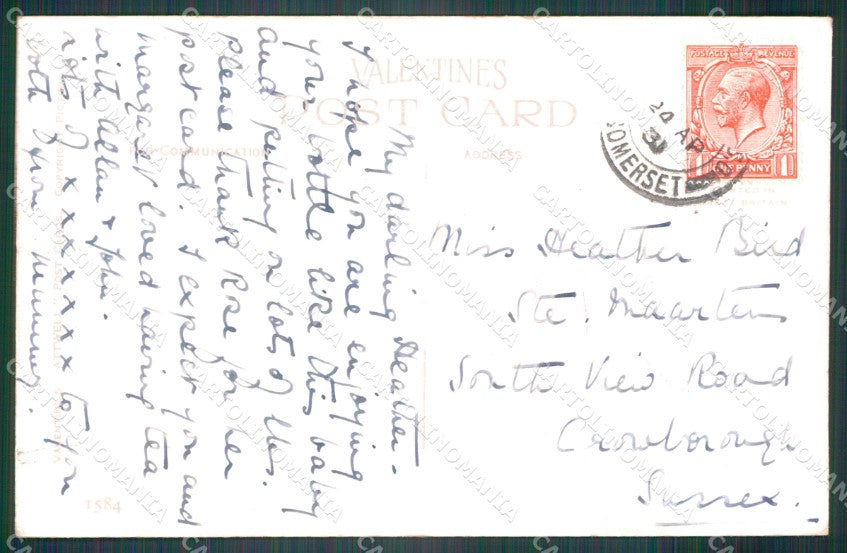 VALENTINES
POST CARD
FOR COMMUNICATION
ADDRESS
POSTAGE REVENUE
ONE PENNY
1
24 AP
31
SOMERSET
My darling Heather -
I hope you are enjoying
your bottle like this baby
and putting on lots of lbs.
Please thank Rose for her
post card. I expect you and
Margaret loved having tea
with Allan & John.
x x x x x x x to you
both from Mummy.
Miss Heather Bird
Ste. Maartens
South View Road
Crowborough
Sussex.
1584
CARTOLINOMANIA